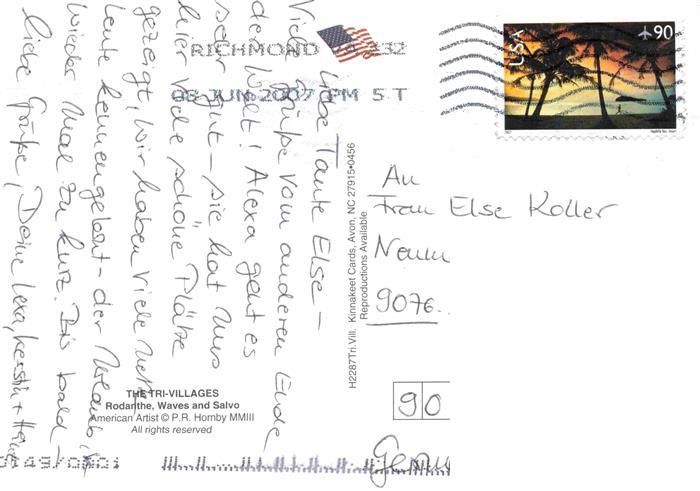 RICHMOND VA 232
08 JUN 2007 PM 5 T
USA
90
Liebe Tante Else –
Viele Grüße vom anderen Ende
der Welt! Alexa geht es
sehr gut – sie hat uns
hier viele schöne Plätze
gezeigt, wir haben viele nette
Leute kennengelernt – der Urlaub ist
wieder mal zu kurz. Bis bald –
liebe Grüße, Deine Lexa, Kerstin +
H2287Tri.Vill. Kinnakeet Cards, Avon, NC 27915•0456
Reproductions Available
An
Frau Else Koller
9076
90
THE TRI-VILLAGES
Rodanthe, Waves and Salvo
American Artist © P.R. Hornby MMIII
All rights reserved